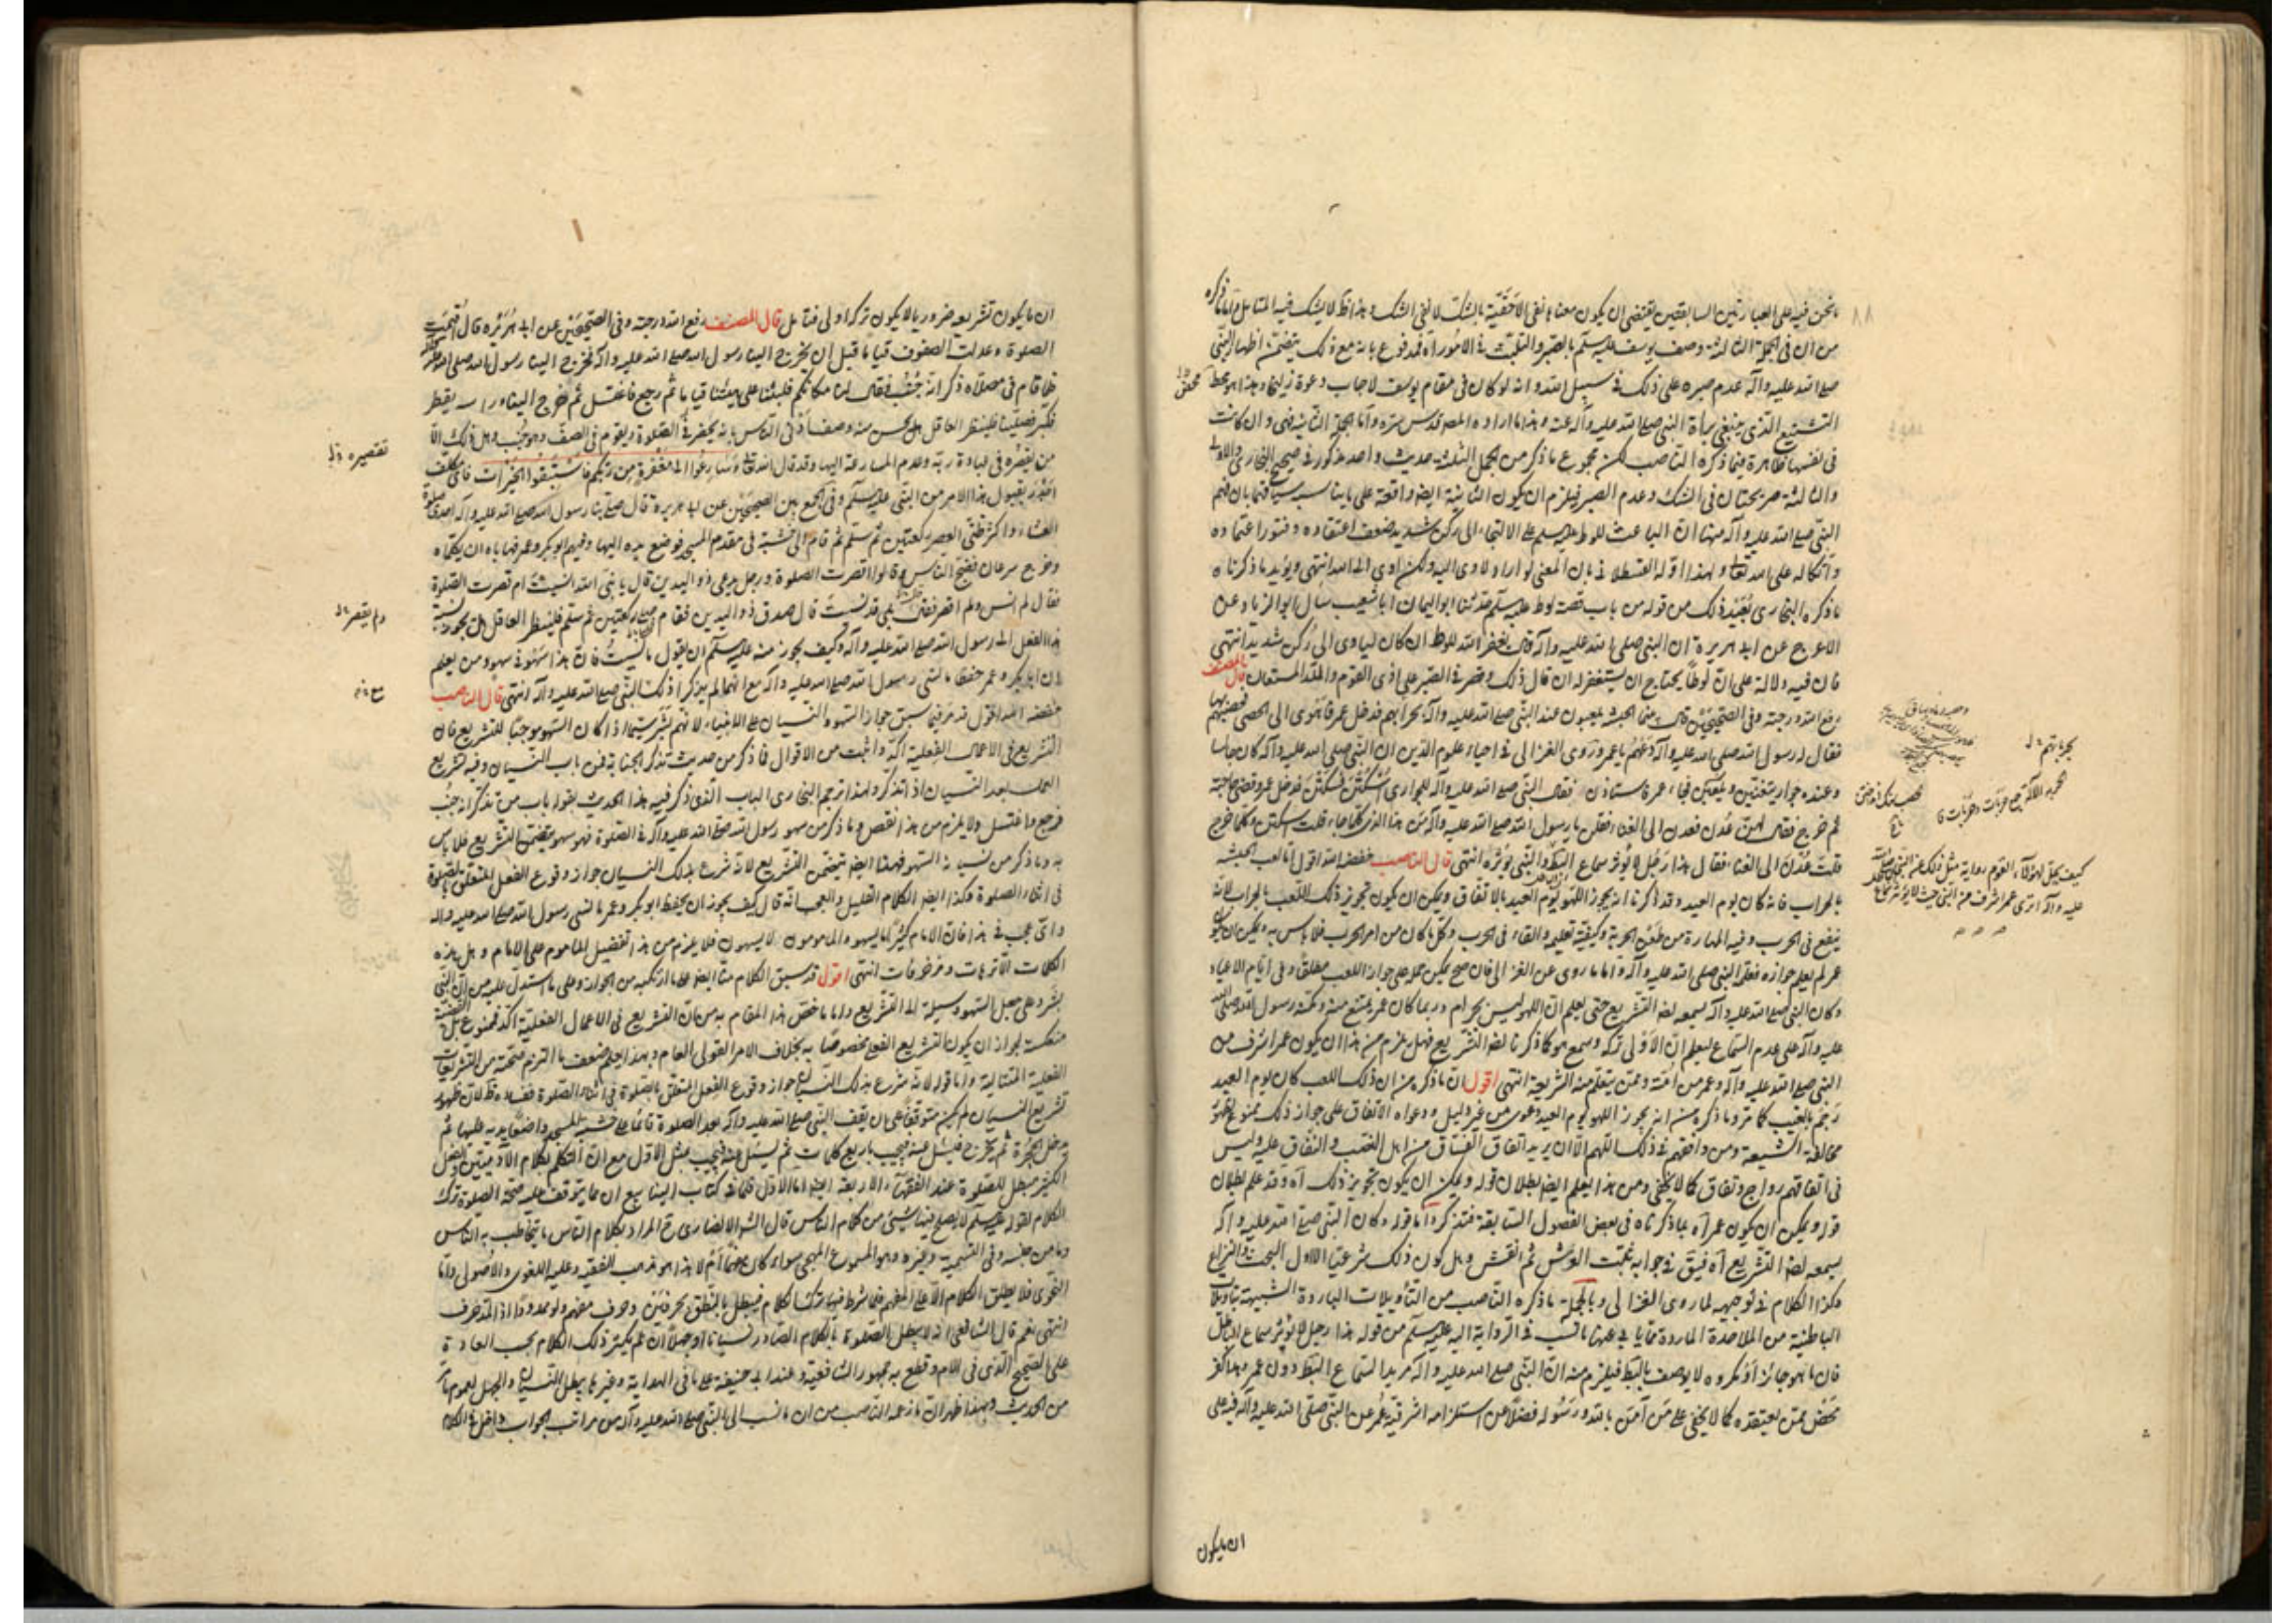 ما نحن فيه على العبارتين السابقتين يقتضي ان يكون معناها نفي الاحقية بالشك لا نفي الشك وهذا مما لا يشك فيه المتامل واما ما ذكره
من ان في الجملة الثالثة وصف يوسف عليه السلم بالصبر والتثبت في الامور اه فمدفوع بانه مع ذلك يتضمن اظهار النبي
صلى الله عليه وآله عدم صبره على ذلك في سبيل الله وانه لو كان في مقام يوسف لاجاب دعوة زليخا وهذا هو محط
التشنيع الذي ينبغي براة النبي صلى الله عليه وآله عنه وهذا ما اراده المصنف قدس سره واما الجملة الثانية فهي وان كانت
في نفسها ظاهرة فيما ذكره الناصب لكن مجموع ما ذكر من الجمل الثلث حديث واحد مذكور في صحيح البخاري والاولى
والثالثة صريحتان في الشك وعدم الصبر فيلزم ان يكون الثانية ايضا واقعة على ما يناسب سياقهما بان فهم
النبي صلى الله عليه وآله منها ان الباعث للوط عليه السلم على الالتجاء الى ركن شديد ضعف اعتقاده وفتور اعتماده
واتكاله على الله تعالى ولهذا اوله القسطلاني بان المعنى لو اراد لاوى اليه ولكن اوى الى الله انتهى ويؤيد ما ذكرناه
ما ذكره البخاري بعيد ذلك من قوله من باب قصة لوط عليه السلم حدثنا ابو اليمان انا شعيب ثنا ابو الزناد عن
الاعرج عن ابي هريرة ان النبي صلى الله عليه وآله قال يغفر الله للوط ان كان لياوي الى ركن شديد انتهى
فان فيه دلالة على ان لوطا يحتاج ان يستغفر له ان قال ذلك وقصر في الصبر على اذى القوم والله المستعان قال المصنف
رفع الله درجته وفي الصحيحين قال بينما الحبشة يلعبون عند النبي صلى الله عليه وآله بحرابهم فدخل عمر فاهوى الى الحصى فحصبهم بها
فقال له رسول الله صلى الله عليه وآله دعهم يا عمر وروى الغزالي في احياء علوم الدين ان النبي صلى الله عليه وآله كان جالسا
وعنده جوار يتغنين ويلعبن فجاء عمر فاستاذن فقال النبي صلى الله عليه وآله للجواري اسكتن فسكتن فدخل عمر وقضى حاجته
ثم خرج فقال لهن عدن فعدن الى الغناء فقلن يا رسول الله صلى الله عليه وآله من هذا الذي كلما جاء قلت اسكتن وكلما خرج
قلت عدن الى الغناء فقال هذا رجل لا يؤثر سماع الباطل والنبي يؤثره انتهى قال الناصب خفضه الله اقول اما لعب الحبشة
بالحراب فانه كان يوم العيد وقد ذكرنا انه يجوز اللهو يوم العيد بالاتفاق ويمكن ان يكون تجويز ذلك اللعب بالحراب لانه
ينفع في الحرب وفيه المهارة من طعن الحربة وكيفية تعليمه والقاءه في الحرب وكل ما كان من امر الحرب فلا باس به ويمكن ان يكون
عمر لم يعلم جوازه فعلمه النبي صلى الله عليه وآله واما ما روى عن الغزالي فان صح يمكن حمله على جواز اللعب مطلقا وفي ايام الاعياد
وكان النبي صلى الله عليه وآله يسمعه لضرورة التشريع حتى يعلم ان اللهو ليس بحرام وربما كان عمر يمتنع منه وتمنه رسول الله صلى الله
عليه وآله على عدم السماع ليعلم ان الاولى تركه وسمع هو كما ذكرنا لضرورة التشريع فهل يلزم من هذا ان يكون عمر اشرف من
النبي صلى الله عليه وآله وعمر من امته وممن يتعلم منه الشريعة انتهى اقول ان ما ذكره من ان ذلك اللعب كان يوم العيد
رجم بالغيب كما مر وما ذكره من انه يجوز اللهو يوم العيد دعوى من غير دليل ودعواه الاتفاق على جواز ذلك ممنوع لظهور
مخالفة الشيعة ومن وافقهم في ذلك اللهم الا ان يريد به اتفاق الفساق من اهل النصب والنفاق عليه وليس
في اتفاقهم رواج ونفاق كما لا يخفى ومن هذا يعلم ايضا بطلان قوله ويمكن ان يكون تجويز ذلك آه وقد علم بطلان
قوله ويمكن ان يكون عمر آه بما ذكرناه في بعض الفصول السابقة فتذكره اما قوله وكان النبي صلى الله عليه وآله
يسمعه لضرورة التشريع آه فيق في جوابه ثبت العرش ثم انقش وهل كون ذلك شرعيا الا اول البحث والنزاع
وكذا الكلام في توجيهه لما روى الغزالي وبالجملة ما ذكره الناصب من التاويلات الباردة الشبيهة بتاويلات
الباطنية من الملاحدة الماردة مما يابى عنها ما نسب في الرواية اليه عليه السلم من قوله هذا رجل لا يؤثر سماع الباطل
فان ما هو جائز او مكروه لا يوصف بالباطل فيلزم منه ان النبي صلى الله عليه وآله مريد السماع الباطل دون عمر وهذا كفر
محض ممن يعتقده كما لا يخفى على من آمن بالله ورسوله فضلا عن استلزامه اشرفية عمر عن النبي صلى الله عليه وآله فيه على
ان ما يكون
٨٨
بحرابهم
كيف يحل لهؤلاء القوم رواية مثل ذلك عن النبي صلى الله
عليه وآله ارى عمر اشرف من النبي حيث لا يؤثر سماع
ان ما يكون تشريعه ضروريا لا يكون تركه اولى فتامل قال المصنف رفع الله درجته وفي الصحيحين عن ابي هريرة قال اقيمت
الصلوة وعدلت الصفوف قياما قبل ان يخرج الينا رسول الله صلى الله عليه وآله فخرج الينا رسول الله صلى الله عليه وآله
فلما قام في مصلاه ذكر انه جنب فقال لنا مكانكم فلبثنا على هيئتنا قياما ثم رجع فاغتسل ثم خرج الينا وراسه يقطر
فكبر فصلينا فلينظر العاقل هل يحسن منه وصف ادنى الناس بانه يحضر في الصلوة ويقوم في الصف وهو جنب وهل ذلك الا
من تقصيره في عبادة ربه وعدم المسارعة اليها وقد قال الله تعالى وسارعوا الى مغفرة من ربكم فاستبقوا الخيرات فاي مكلف
اجدر بقبول هذا الامر من النبي عليه السلم وفي الجمع بين الصحيحين عن ابي هريرة قال صلى بنا رسول الله صلى الله عليه وآله احدى صلوة
العشاء واكثر ظني العصر ركعتين ثم سلم ثم قام الى خشبة في مقدم المسجد فوضع يده اليها وفيهم ابو بكر وعمر فهابا ان يكلماه
وخرج سرعان فضج الناس وقالوا اقصرت الصلوة ورجل يدعى ذو اليدين قال يا نبي الله انسيت ام قصرت الصلوة
فقال لم انس ولم اقصر فقال بلى قد نسيت قال صدق ذو اليدين فقام فصلى ركعتين ثم سلم فلينظر العاقل هل يجوز نسبة
هذا الفعل الى رسول الله صلى الله عليه وآله وكيف يجوز منه عليه السلم ان يقول ما نسيت فان هذا سهو في سهو ومن يعلم
ان ابا بكر وعمر حفظا ما نسي رسول الله صلى الله عليه وآله مع انهما لم يذكرا ذلك للنبي صلى الله عليه وآله انتهى قال الناصب
خفضه الله اقول قد مر فيما سبق جواز السهو والنسيان على الانبياء لانهم بشر سيما اذا كان السهو موجبا للتشريع فان
التشريع في الاعمال الفعلية آكد واثبت من الاقوال فما ذكر من حديث تذكر الجنابة فمن باب النسيان وفيه تشريع
العمل بعد النسيان اذا تذكر ولهذا ترجم البخاري الباب الذي ذكر فيه هذا الحديث بقوله باب من تذكر انه جنب
فرجع واغتسل ولا يلزم من هذا نقص وما ذكر من سهو رسول الله صلى الله عليه وآله في الصلوة فهو سهو يتضمن التشريع فلا باس
به وما ذكر من نسيانه السهو فهذا ايضا يتضمن التشريع لانه شرع بذلك النسيان جواز وقوع الفعل المتعلق بالصلوة
في اثناء الصلوة وكذا ايضا الكلام القليل والعجب انه قال كيف يجوز ان يحفظ ابو بكر وعمر ما نسي رسول الله صلى الله عليه وآله
واي عجب في هذا فان الامام كثيرا ما يسهو والمامومون لا يسهون فلا يلزم من هذا تفضيل الماموم على الامام وهل هذه
الكلمات الا ترهات ومزخرفات انتهى اقول قد سبق الكلام منا ايضا على ما ارتكبه من الجواز وعلى ما استدل عليه من ان النبي
بشر وعلى جعل السهو وسيلة الى التشريع واما ما خص هذا المقام به من ان التشريع في الاعمال الفعلية آكد فممنوع بل القضية
منعكسة لجواز ان يكون التشريع الفعلي مخصوصا به بخلاف الامر القولي العام وبهذا يعلم ضعف ما التزم صحته من التشريعات
الفعلية المتتالية واما قوله لانه شرع بذلك النسيان جواز وقوع الفعل المتعلق بالصلوة في اثناء الصلوة ففساده ظ لان ظهور
تشريع النسيان لم يكن متوقفا على ان يقف النبي صلى الله عليه وآله بعد الصلوة قائما على خشبة المسجد واضعا يديه عليها ثم
يدخل الحجرة ثم يخرج فيسئل عنه فيجيب باربع كلمات ثم يسئل عنه فيجيب مثل الاول مع ان التكلم بكلام الآدميين والفعل
الكثير مبطل للصلوة عند الفقهاء الاربعة ايضا اما الاول فلما في كتاب الينابيع ان مما يتوقف عليه صحة الصلوة ترك
الكلام لقوله عليه السلم لا يصلح فيها شيئ من كلام الناس قال الشارح الانصاري رح المراد بكلام الناس ما يتخاطب به الناس
وما من جنسه وفي التسمية وغيره وهو المسموع المهجى سواء كان مفهما ام لا هذا هو مذهب الفقيه وعليه اللغوي والاصولي واما
النحوي فلا يطلق الكلام الا على المفهم فلما شرط فيها ترك الكلام فيبطل بالنطق بحرفين وحرف مفهم ولو ممدودا اذ المد حرف
انتهى نعم قال الشافعي انه لا يبطل الصلوة بالكلام الصادر نسيانا او جهلا ان لم يكثر ذلك الكلام بحسب العادة
على الصحيح الذي في الام وقطع به جمهور الشافعية وعند ابي حنيفة على ما في الهداية وغيرها يبطل النسيان والجهل لعموم ما مر
من الحديث وبهذا ظهر ان ما زعمه الناصب من ان ما نسب الى النبي صلى الله عليه وآله من مراتب الجواب داخل في الكلام
تقصيره
ولم يقصر